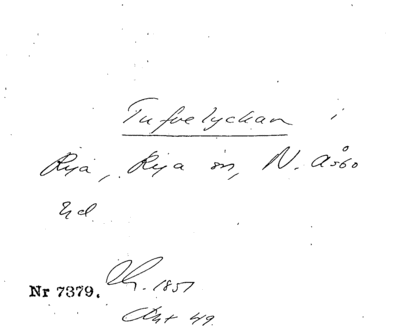 Tufvelyckan i
Rya, Rya sn, N. Åsbo
hd
Nr 7379. Ch. 1851
Akt 49.